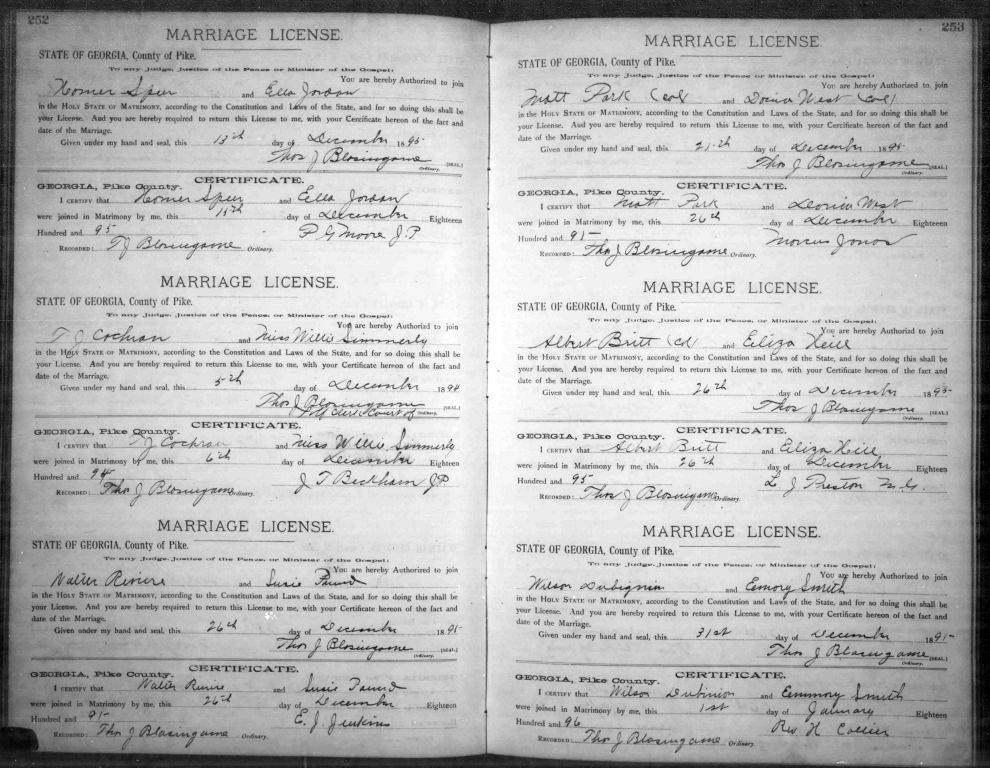 252
MARRIAGE LICENSE.
STATE OF GEORGIA, County of Pike.
To any Judge, Justice of the Peace or Minister of the Gospel:
You are hereby Authorized to join
Homer Speer and Ella Jordan
in the HOLY STATE OF MATRIMONY, according to the Constitution and Laws of the State, and for so doing this shall be
your License. And you are hereby required to return this License to me, with your Certificate hereon of the fact and
date of the Marriage.
Given under my hand and seal, this 13th day of December 1895
Thos J Blasingame [SEAL.]
Ordinary.
CERTIFICATE.
GEORGIA, Pike County.
I CERTIFY that Homer Speer and Ella Jordan
were joined in Matrimony by me, this 15th day of December Eighteen
Hundred and 95 P G Moore J.P.
RECORDED: T J Blasingame Ordinary.
MARRIAGE LICENSE.
STATE OF GEORGIA, County of Pike.
To any Judge, Justice of the Peace, or Minister of the Gospel:
You are hereby Authorized to join
T J Cochran and Miss Willie Simmerly
in the HOLY STATE OF MATRIMONY, according to the Constitution and Laws of the State, and for so doing this shall be
your License. And you are hereby required to return this License to me, with your Certificate hereon of the fact and
date of the Marriage.
Given under my hand and seal, this 5th day of December 1894
Thos J Blasingame [SEAL.]
Clerk Court of Ordinary.
CERTIFICATE.
GEORGIA, Pike County.
I CERTIFY that T J Cochran and Miss Willie Simmerly
were joined in Matrimony by me, this 6th day of December Eighteen
Hundred and 94 J T Beckham J.P.
RECORDED: Thos J Blasingame Ordinary.
MARRIAGE LICENSE.
STATE OF GEORGIA, County of Pike.
To any Judge, Justice of the Peace, or Minister of the Gospel:
You are hereby Authorized to join
Walter Riviere and Susie Pound
in the HOLY STATE OF MATRIMONY, according to the Constitution and Laws of the State, and for so doing this shall be
your License. And you are hereby required to return this License to me, with your Certificate hereon of the fact and
date of the Marriage.
Given under my hand and seal, this 26th day of December 1895
Thos J Blasingame [SEAL.]
Ordinary.
CERTIFICATE.
GEORGIA, Pike County.
I CERTIFY that Walter Riviere and Susie Pound
were joined in Matrimony by me, this 26th day of December Eighteen
Hundred and 95 E. J. Jenkins
RECORDED: Thos J Blasingame Ordinary.
253
MARRIAGE LICENSE.
STATE OF GEORGIA, County of Pike.
To any Judge, Justice of the Peace or Minister of the Gospel:
You are hereby Authorized to join
Matt Park (col) and West (col)
in the HOLY STATE OF MATRIMONY, according to the Constitution and Laws of the State, and for so doing this shall be
your License. And you are hereby required to return this License to me, with your Certificate hereon of the fact and
date of the Marriage.
Given under my hand and seal, this 21st day of December 1895
Thos J Blasingame [SEAL.]
Ordinary.
CERTIFICATE.
GEORGIA, Pike County.
I CERTIFY that Matt Park and West
were joined in Matrimony by me, this 26th day of December Eighteen
Hundred and 95 Jones
RECORDED: Thos J Blasingame Ordinary.
MARRIAGE LICENSE.
STATE OF GEORGIA, County of Pike.
To any Judge, Justice of the Peace, or Minister of the Gospel:
You are hereby Authorized to join
Albert Britt Col and Eliza
in the HOLY STATE OF MATRIMONY, according to the Constitution and Laws of the State, and for so doing this shall be
your License. And you are hereby required to return this License to me, with your Certificate hereon of the fact and
date of the Marriage.
Given under my hand and seal, this 26th day of December 1895
Thos J Blasingame [SEAL.]
Ordinary.
CERTIFICATE.
GEORGIA, Pike County.
I CERTIFY that Albert Britt and Eliza
were joined in Matrimony by me, this 26th day of December Eighteen
Hundred and 95 L J Preston M.G.
RECORDED: Thos J Blasingame Ordinary.
MARRIAGE LICENSE.
STATE OF GEORGIA, County of Pike.
To any Judge, Justice of the Peace, or Minister of the Gospel:
You are hereby Authorized to join
Wilson and Emory Smith
in the HOLY STATE OF MATRIMONY, according to the Constitution and Laws of the State, and for so doing this shall be
your License. And you are hereby required to return this License to me, with your Certificate hereon of the fact and
date of the Marriage.
Given under my hand and seal, this 31st day of December 1895
Thos J Blasingame [SEAL.]
Ordinary.
CERTIFICATE.
GEORGIA, Pike County.
I CERTIFY that Wilson Dubinion and Emmory Smith
were joined in Matrimony by me, this 1st day of January Eighteen
Hundred and 96 Rev H Collier
RECORDED: Thos J Blasingame Ordinary.